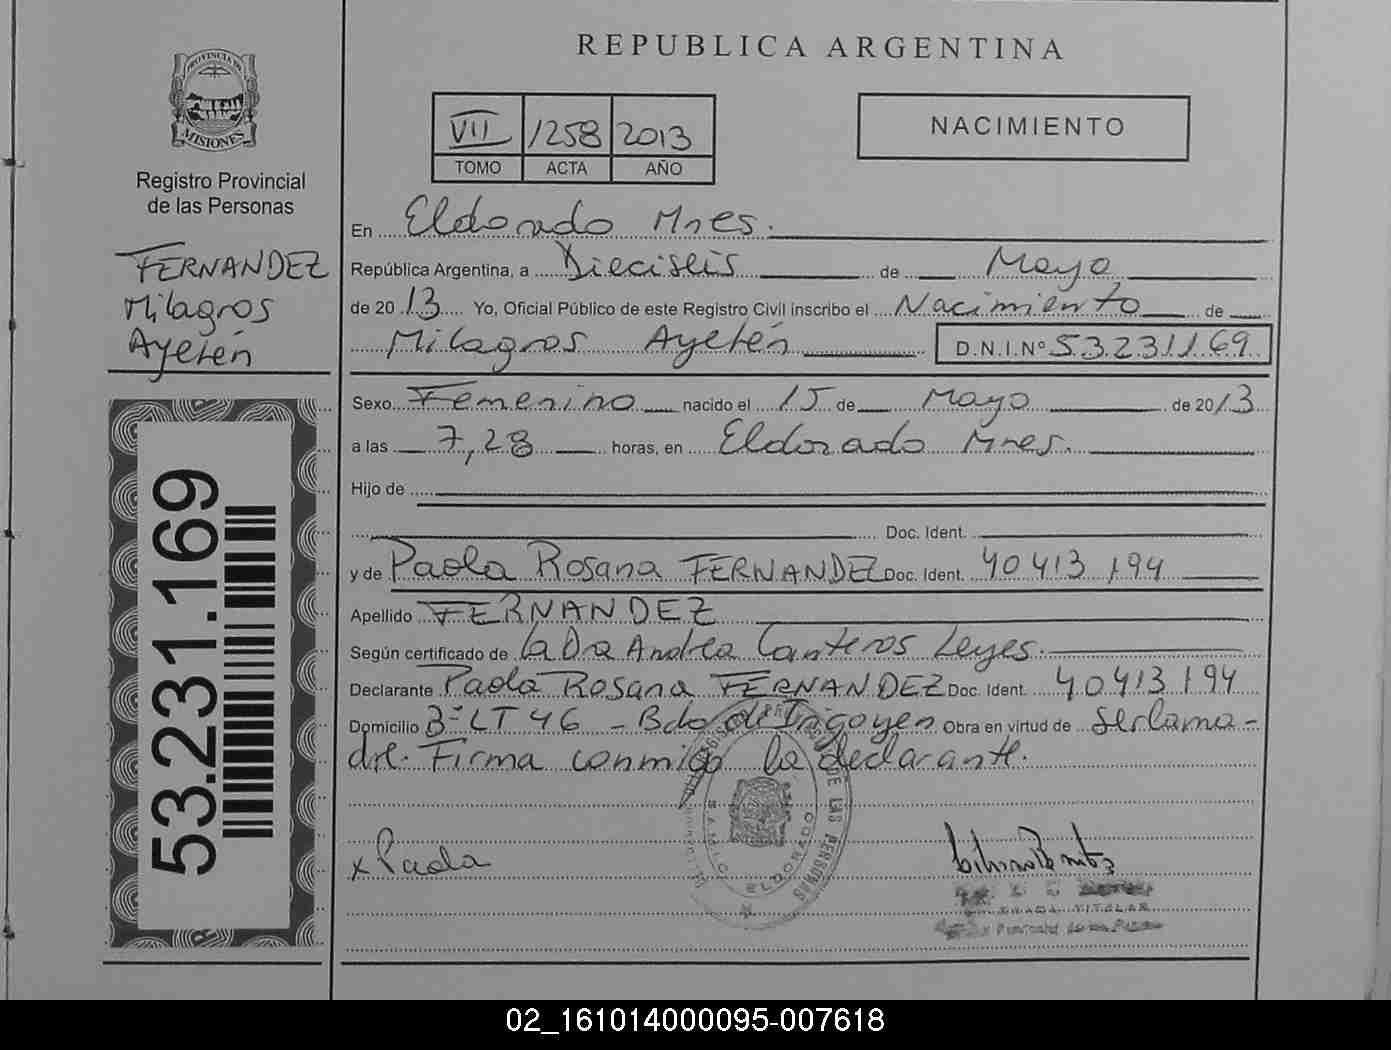 REPUBLICA ARGENTINA
PROVINCIA DE
MISIONES
Registro Provincial
de las Personas
VII 1258 2013
TOMO ACTA AÑO
NACIMIENTO
FERNANDEZ
Milagros
Ayelén
53.231.169
En Eldorado Mnes.
República Argentina, a Dieciseis de Mayo
de 2013 Yo, Oficial Público de este Registro Civil inscribo el Nacimiento de
Milagros Ayelén D.N.I.Nº 53231169
Sexo Femenino nacido el 15 de Mayo de 2013
a las 7,28 horas, en Eldorado Mnes.
Hijo de
Doc. Ident.
y de Paola Rosana FERNANDEZ Doc. Ident. 40413194
Apellido FERNANDEZ
Según certificado de la Dra Andrea Canteros Leyes.
Declarante Paola Rosana FERNANDEZ Doc. Ident. 40413194
Domicilio Bº LT 46 - Bdo de Irigoyen Obra en virtud de ser la ma-
dre. Firma conmigo la declarante.
x Paola
DE LAS PERSONAS
ELDORADO
TITULAR
02_161014000095-007618